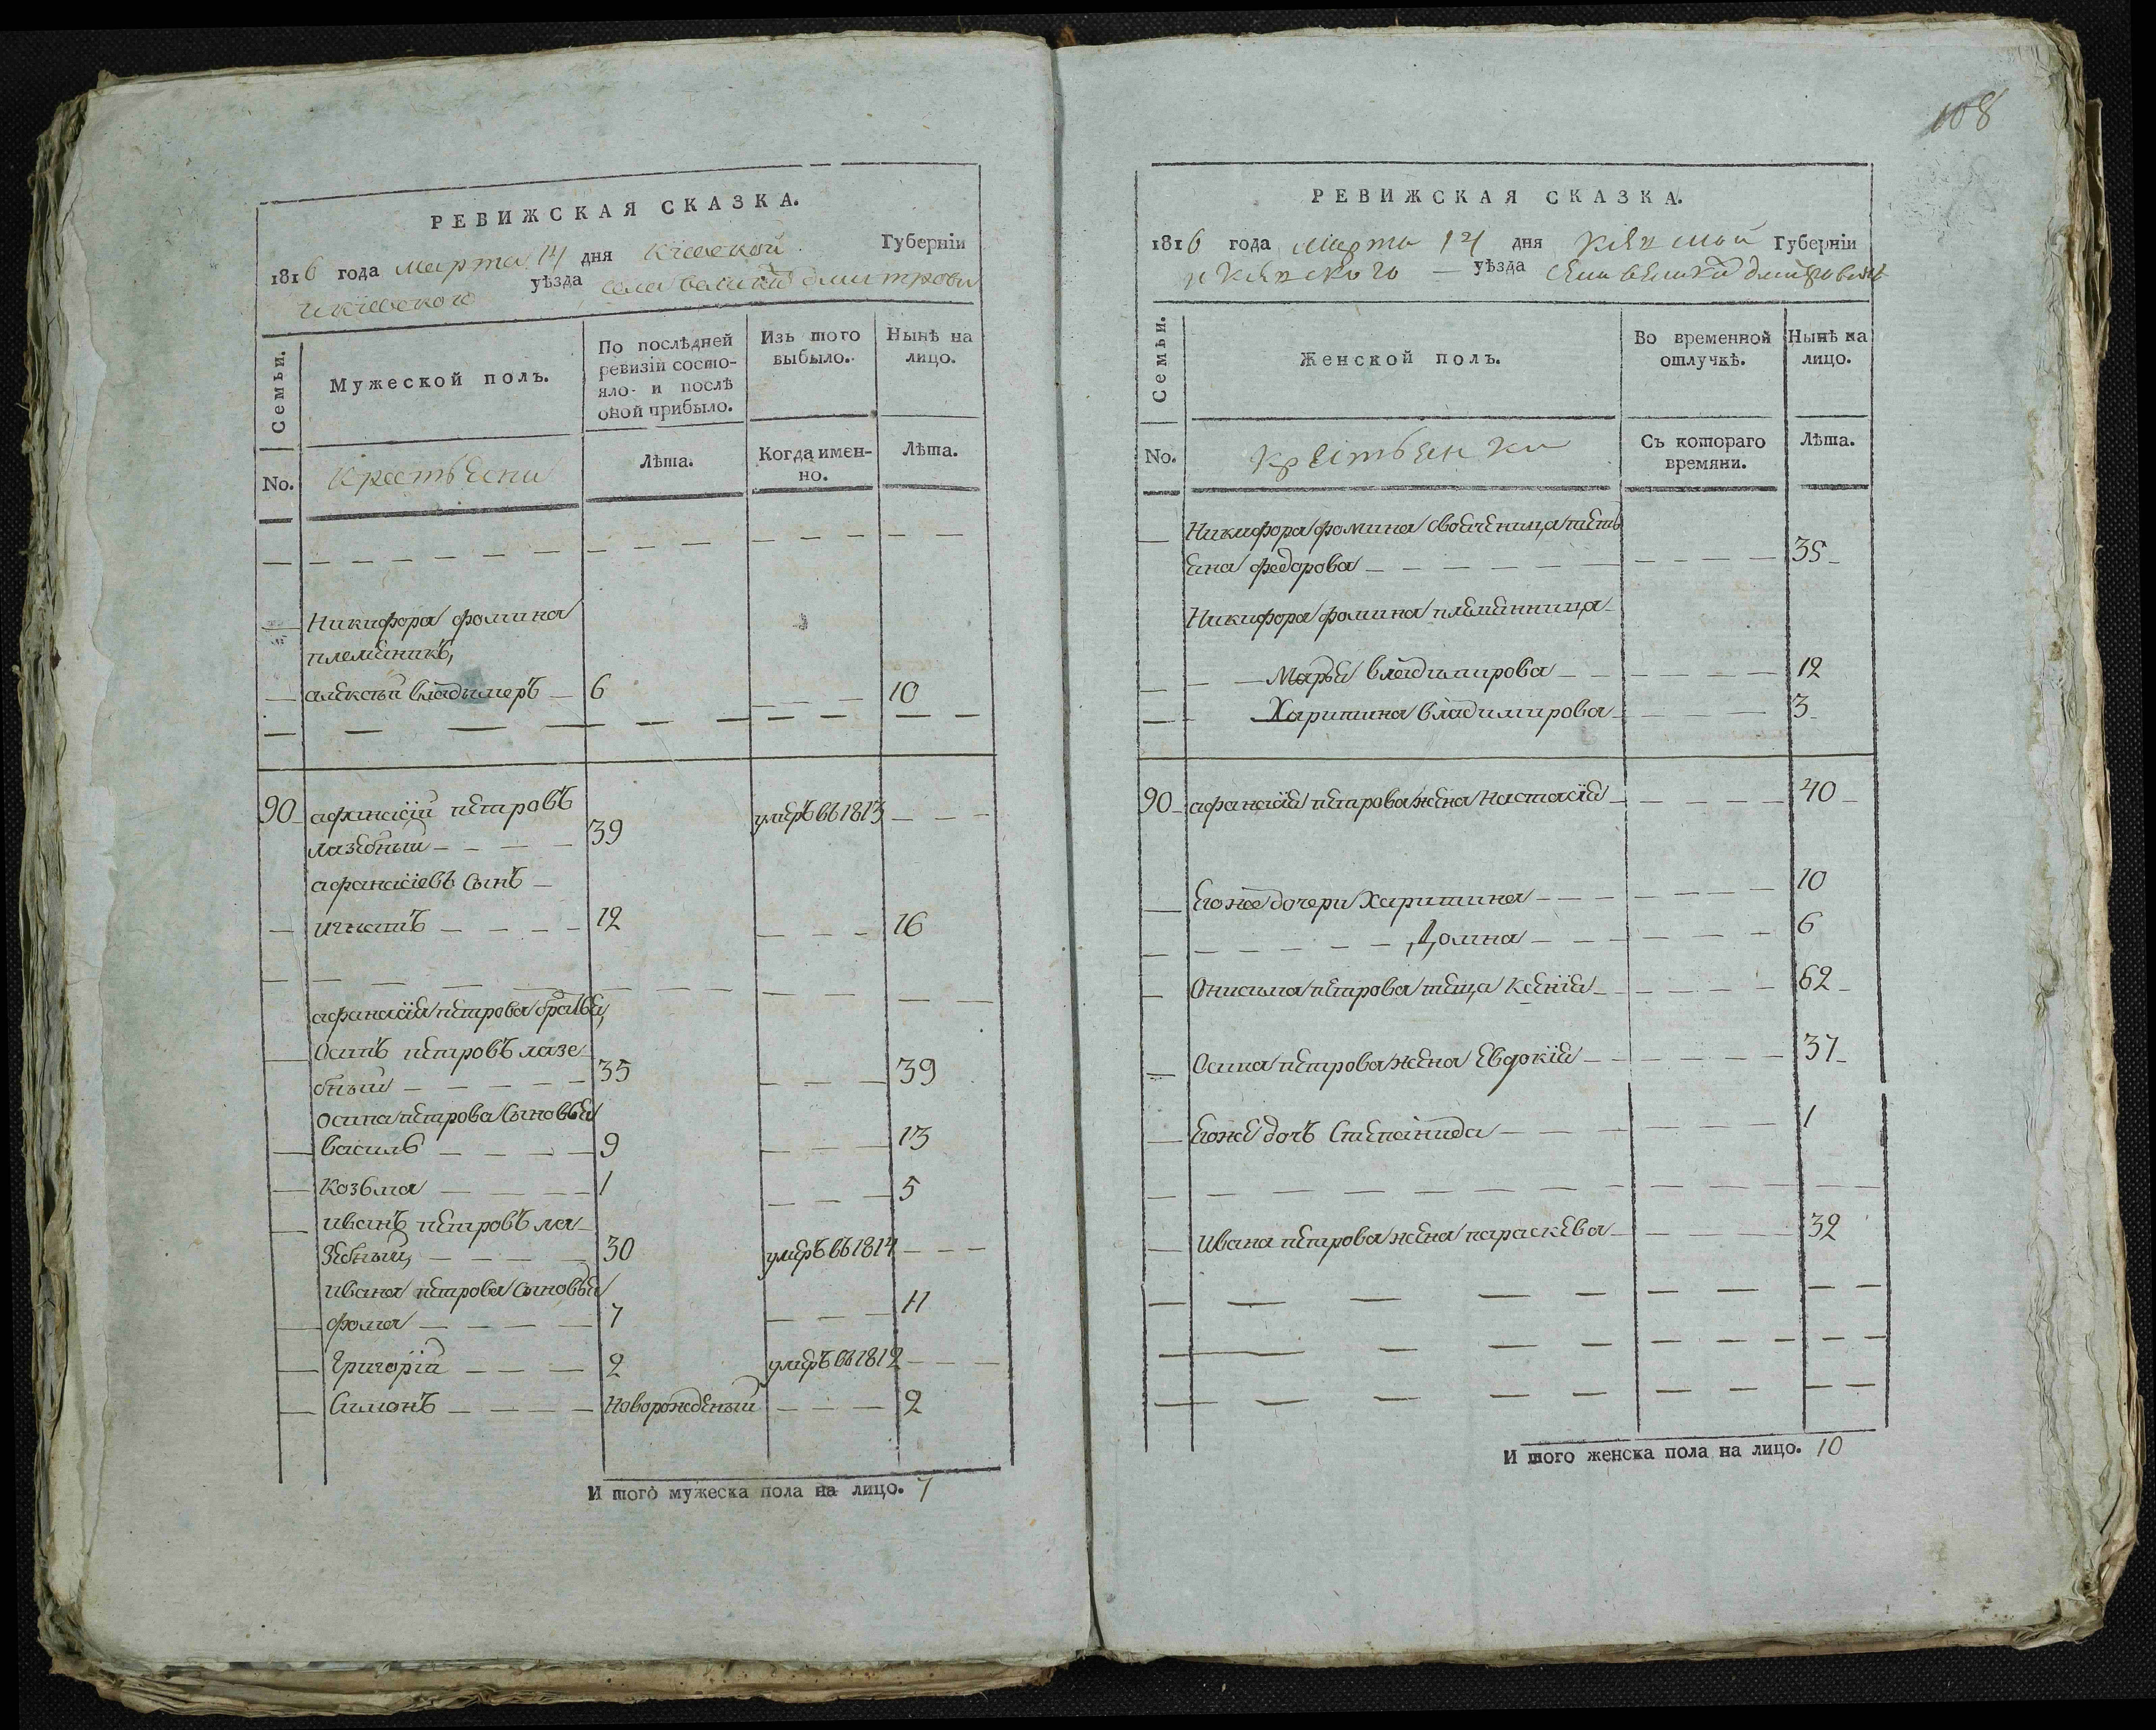 108
РЕВИЖСКАЯ СКАЗКА.
1816 года марта 14 дня Кіевской Губерніи
и кіевского уѣзда села великой дмитрови
Семьи.
Мужеской полъ.
По послѣдней ревизіи состояло и послѣ оной прибыло.
Изъ того выбыло.
Нынѣ на лицо.
No.
Крестьяни
Лѣта.
Когда именно.
Лѣта.
Никифора фомина
племѣникъ,
алексѣй владимеръ 6 10
90 афанасій петровъ
лазебный 39 умеръ въ 1813
афанасіевъ сынъ
игнатъ 12 16
афанасія петрова братья,
Осипъ петровъ лазе
бный 35 39
осипа петрова сыновья
василь 9 13
козьма 1 5
иванъ петровъ ла
зебный, 30 умеръ въ 1814
ивана петрова сыновья
фома 7 11
Григорій 2 умеръ въ 1812
Симонъ Новорожденый 2
И того мужеска пола на лицо. 7
РЕВИЖСКАЯ СКАЗКА.
1816 года марта 14 дня Губерніи
и уѣзда
Семьи.
Женской полъ.
Во временной отлучкѣ.
Нынѣ на лицо.
No.
Крестьянки
Съ котораго времяни.
Лѣта.
Никифора фомина своеченица тетя
ена федорова 35
Никифора фомина племянница
Марья владимирова 12
Харитина владимирова 3
90 афанасія петрова жена Настасія 40
Егоже дочери Харитина 10
Домна 6
Онисима петрова теща Ксенія 62
Осипа петрова жена Евдокія 37
Егоже дочъ Степанида 1
Ивана петрова жена параскева 32
И того женска пола на лицо. 10